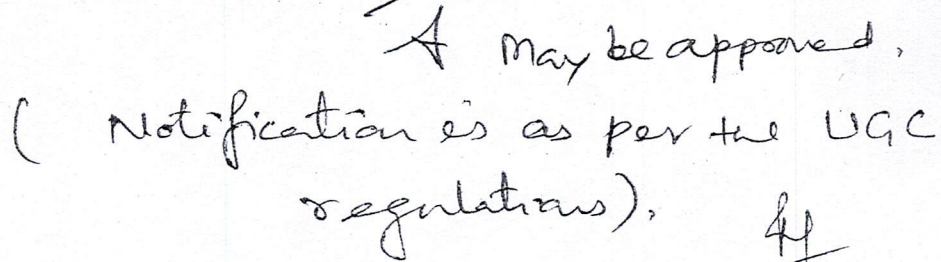 A may be approved.
( Notification is as per the UGC
regulations).